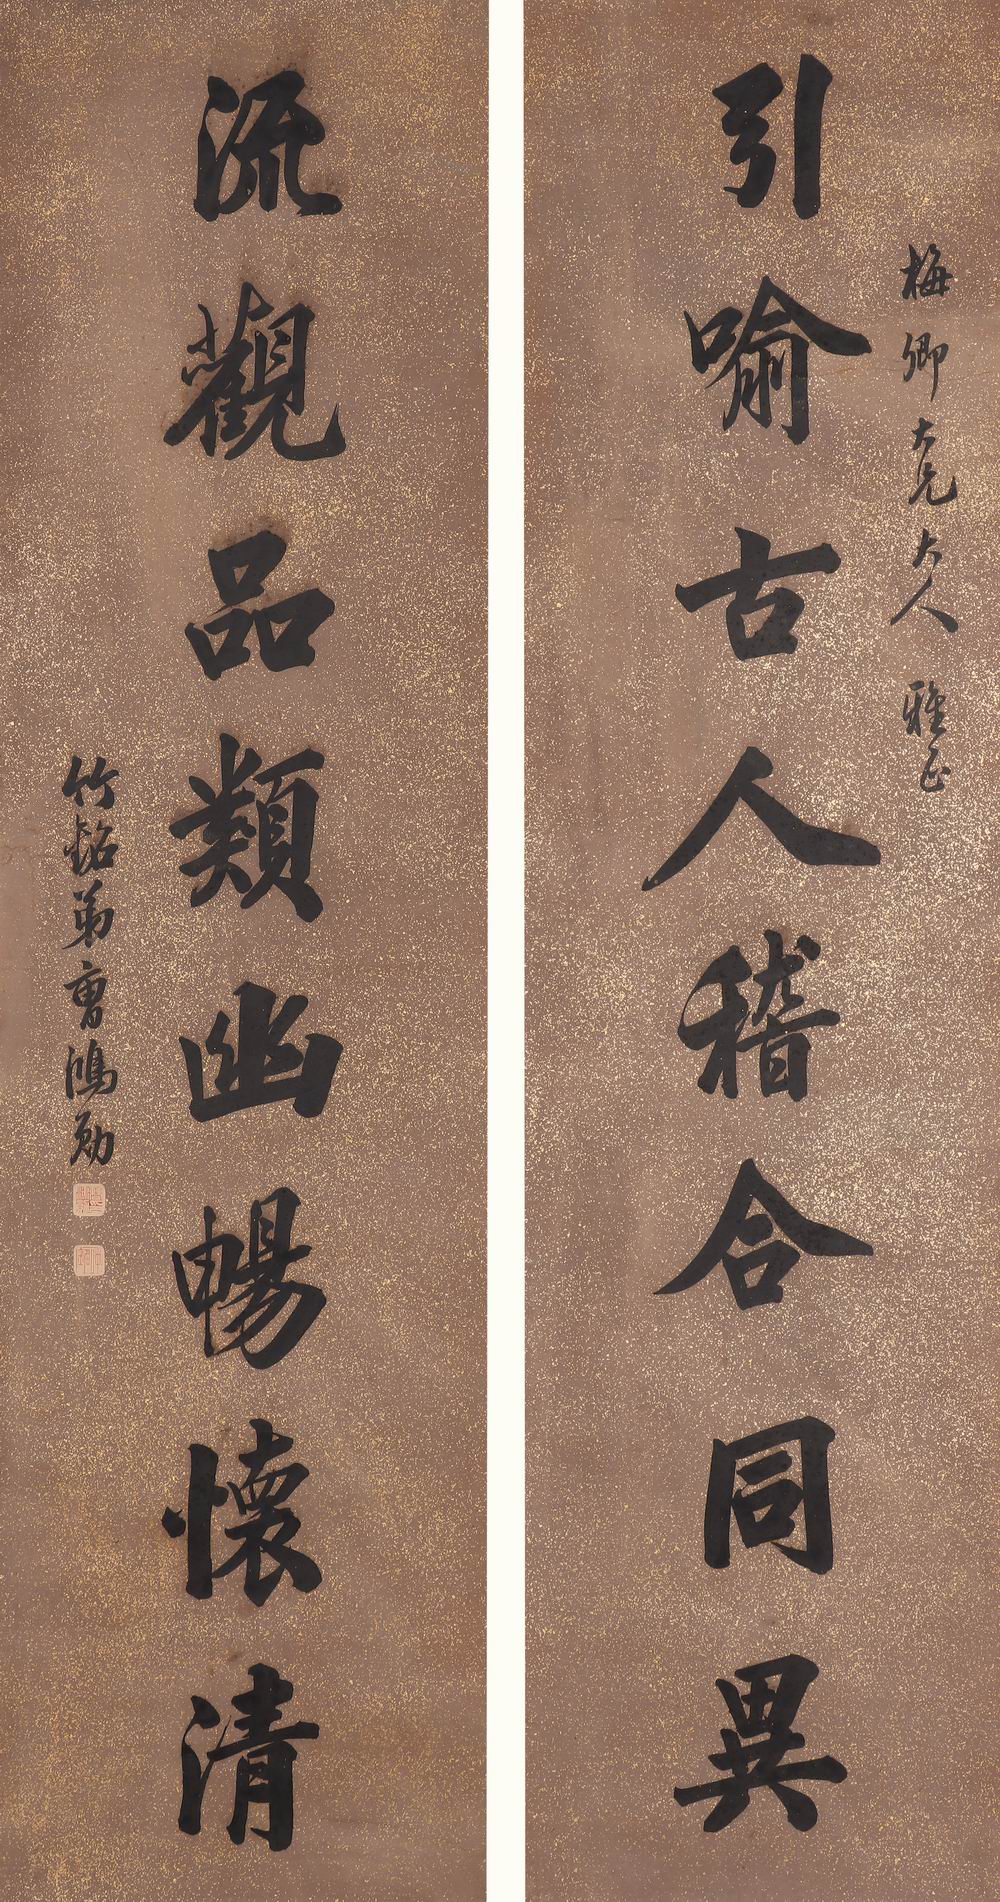 梅卿大兄大人雅正
引喻古人稽合同異
流觀品類幽暢懷清
竹銘弟曹鴻勛